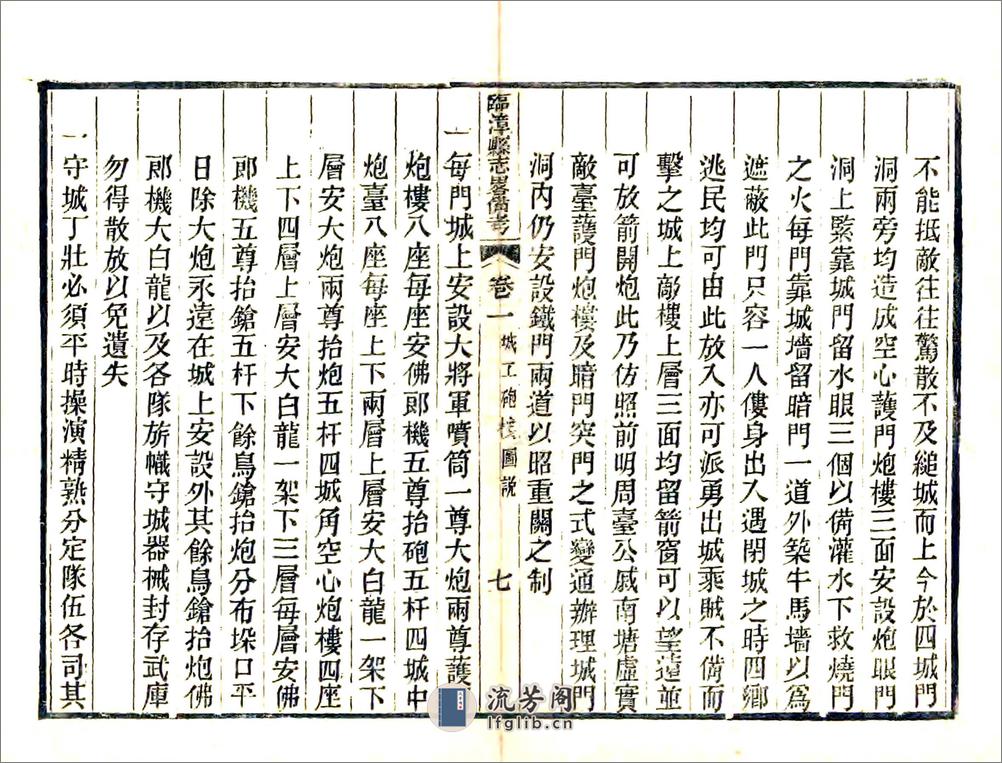 不能抵敵往往驚散不及縋城而上今於四城門
洞兩旁均造成空心護門炮樓三面安設炮眼門
洞上緊靠城門留水眼三個以備灌水下救燒門
之火每門靠城墻留暗門一道外築牛馬墻以為
遮蔽此門只容一人僂身出入遇閉城之時四鄉
逃民均可由此放入亦可派勇出城乘賊不備而
擊之城上敵樓上層三面均留箭窗可以望遠並
可放箭開炮此乃仿照前明周臺公戚南塘虛實
敵臺護門炮樓及暗門突門之式變通辦理城門
洞內仍安設鐵門兩道以昭重關之制
臨漳縣志畧備考 卷一 城工砲樓圖說 七
一每門城上安設大將軍噴筒一尊大炮兩尊護門
炮樓八座每座安佛郎機五尊抬砲五杆四城中
炮臺八座每座上下兩層上層安大白龍一架下
層安大炮兩尊抬炮五杆四城角空心炮樓四座
上下四層上層安大白龍一架下三層每層安佛
郎機五尊抬鎗五杆下餘鳥鎗抬炮分布垛口平
日除大炮永遠在城上安設外其餘鳥鎗抬炮佛
郎機大白龍以及各隊旂幟守城器械封存武庫
勿得散放以免遺失
一守城丁壯必須平時操演精熟分定隊伍各司其
流芳阁
lfglib.cn